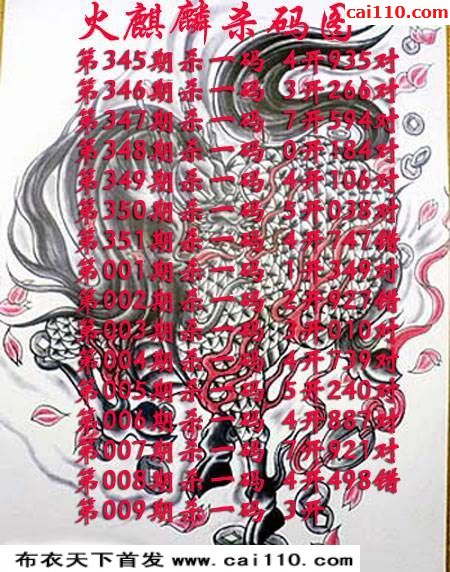 cai110.com
火麒麟杀码图
第345期杀一码 4开935对
第346期杀一码 3开266对
第347期杀一码 7开594对
第348期杀一码 0开184对
第349期杀一码 4开106对
第350期杀一码 5开038对
第351期杀一码 4开747错
第001期杀一码 1开349对
第002期杀一码 2开927错
第003期杀一码 3开010对
第004期杀一码 4开739对
第005期杀一码 5开240对
第006期杀一码 4开887对
第007期杀一码 7开921对
第008期杀一码 4开498错
第009期杀一码 3开
布衣天下首发 www.cai110.com